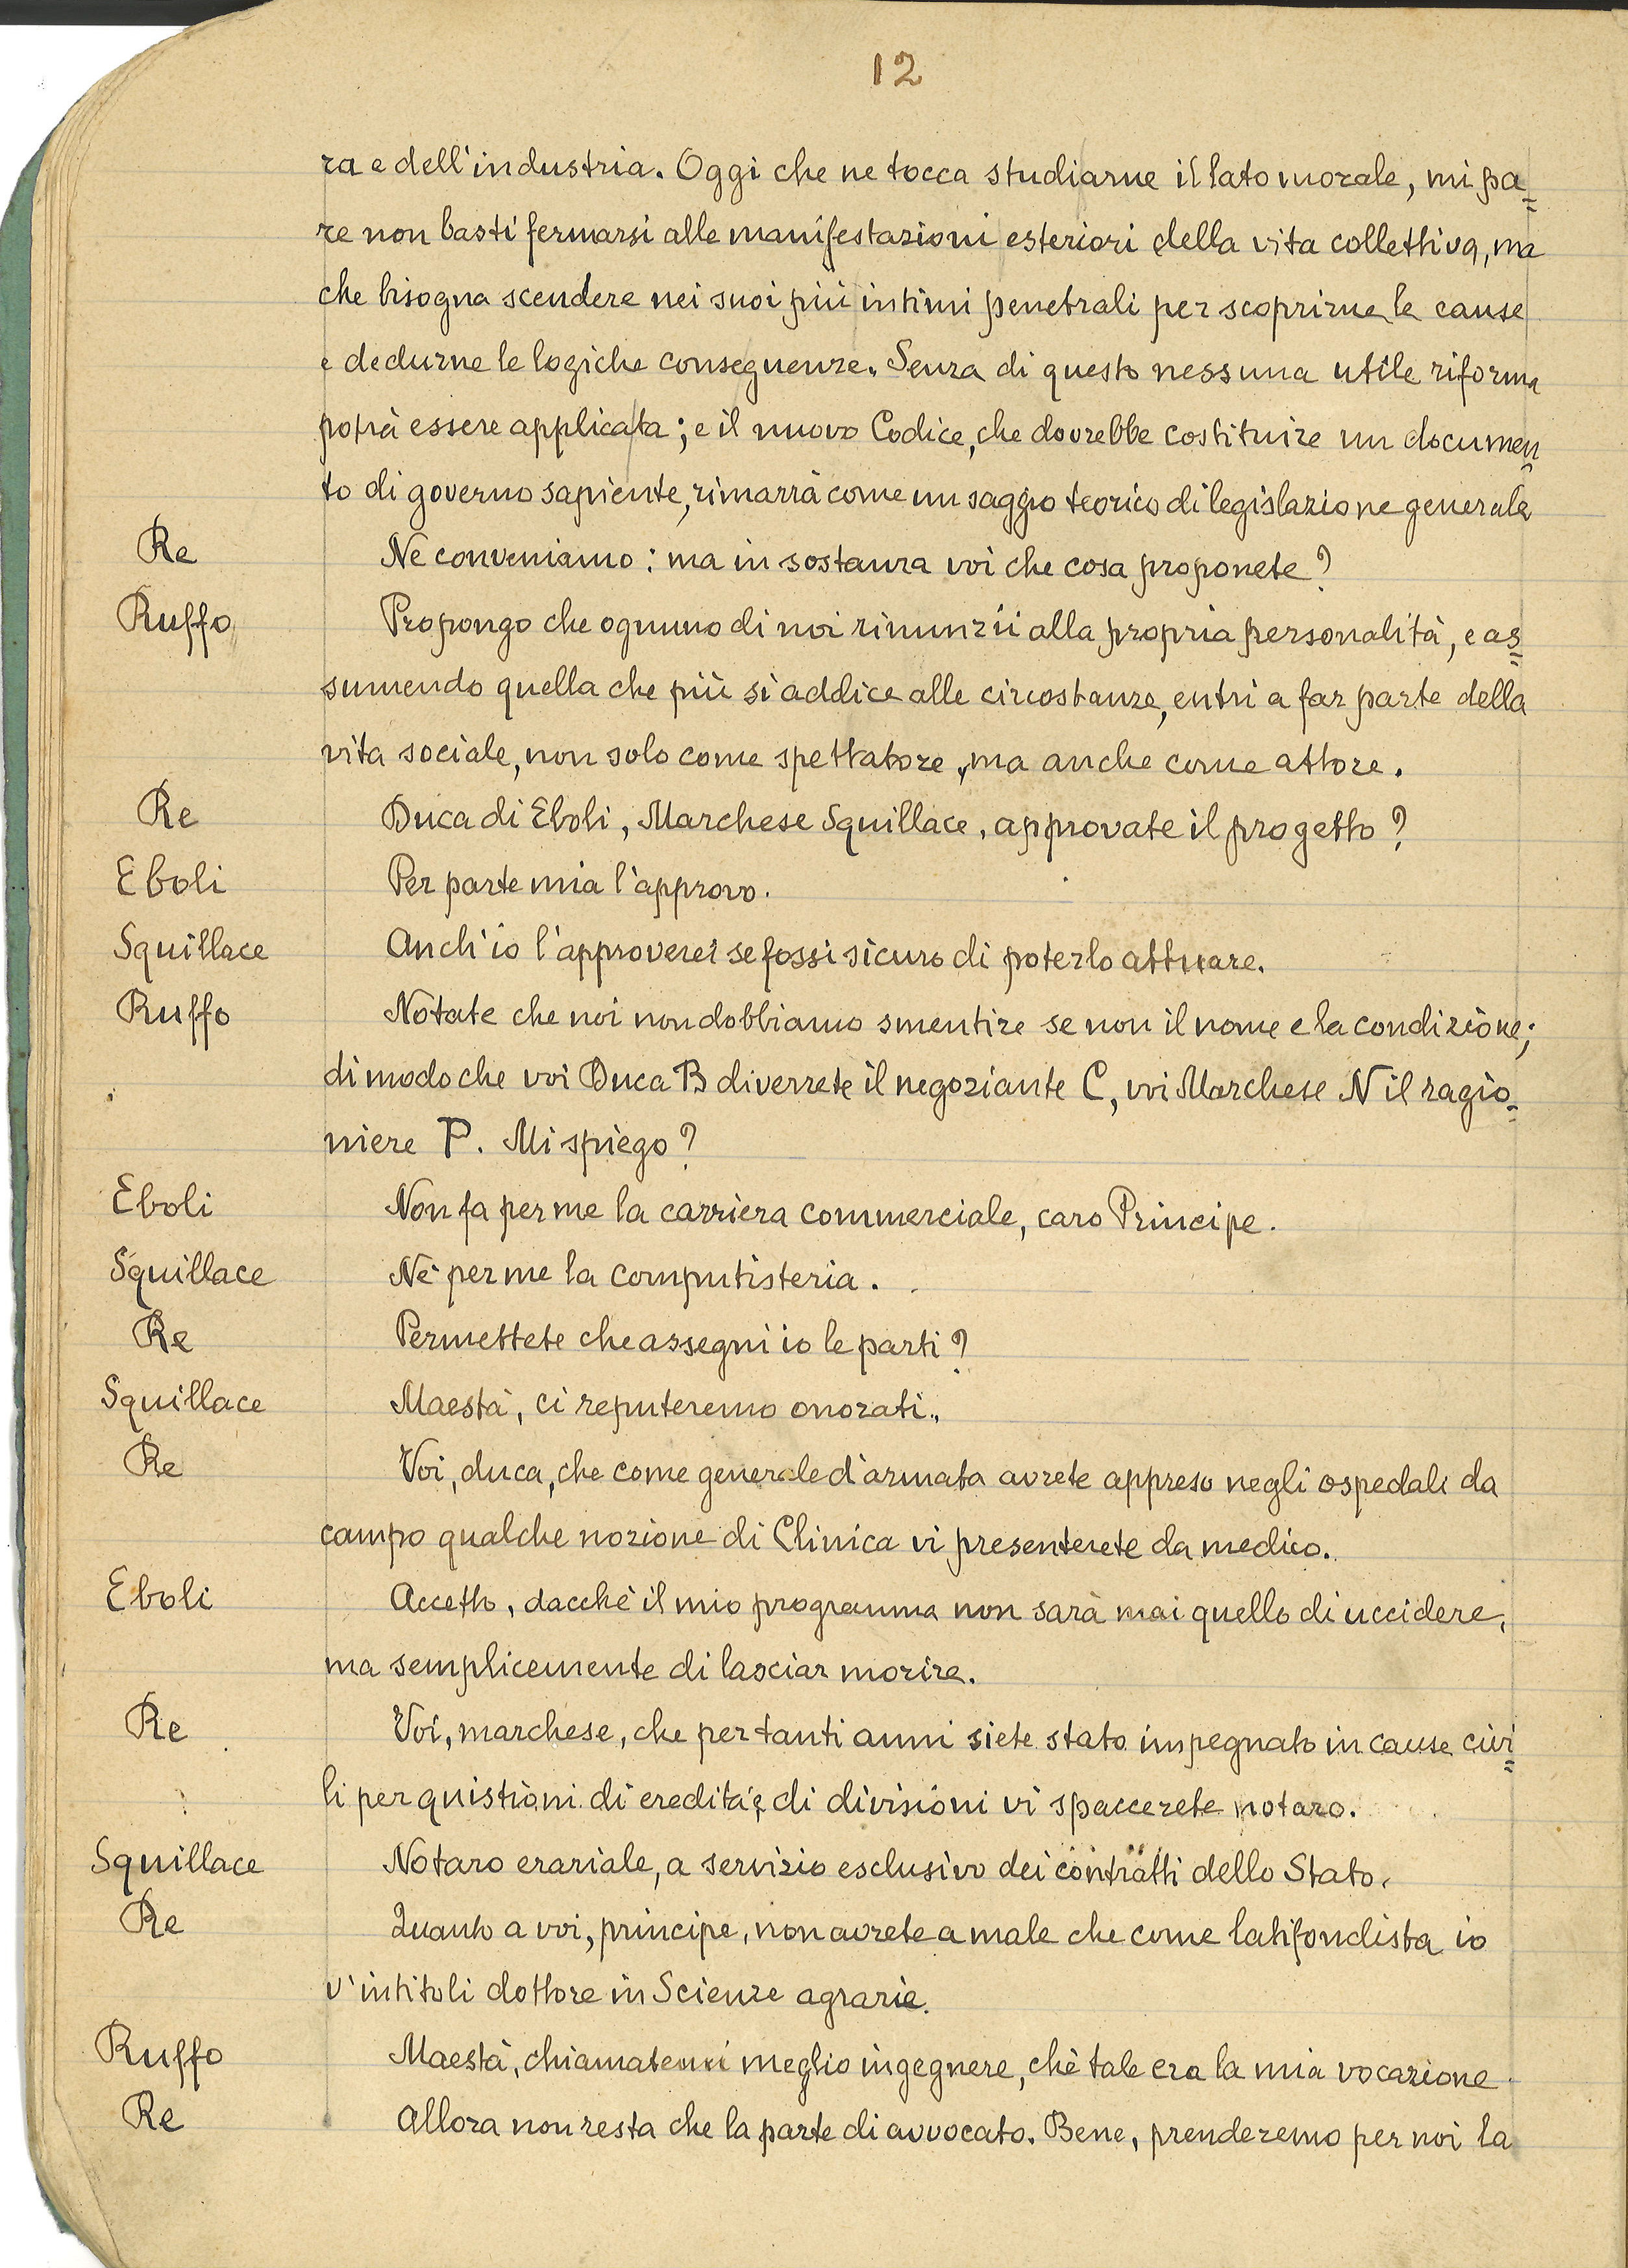 12
ra e dell'industria. Oggi che ne tocca studiarne il lato morale, mi pa=
re non basti fermarsi alle manifestazioni esteriori della vita collettiva, ma
che bisogna scendere nei suoi più intimi penetrali per scoprirne le cause
e dedurne le logiche conseguenze. Senza di questo nessuna utile riforma
potrà essere applicata; e il nuovo Codice, che dovrebbe costituire un documen=
to di governo sapiente, rimarrà come un saggio teorico di legislazione generale
Re Ne conveniamo: ma in sostanza voi che cosa proponete?
Ruffo Propongo che ognuno di noi rinunzii alla propria personalità, e as=
sumendo quella che più si addice alle circostanze, entri a far parte della
vita sociale, non solo come spettatore, ma anche come attore.
Re Duca di Eboli, Marchese Squillace, approvate il progetto?
Eboli Per parte mia l'approvo.
Squillace Anch'io l'approverei se fossi sicuro di poterlo attuare.
Ruffo Notate che noi non dobbiamo smentire se non il nome e la condizione;
di modo che voi Duca B diverrete il negoziante C, voi Marchese N il ragio=
niere P. Mi spiego?
Eboli Non fa per me la carriera commerciale, caro Principe.
Squillace Nè per me la computisteria.
Re Permettete che assegni io le parti?
Squillace Maestà, ci reputeremo onorati.
Re Voi, duca, che come generale d'armata avrete appreso negli ospedali da
campo qualche nozione di Clinica vi presenterete da medico.
Eboli Accetto, dacchè il mio programma non sarà mai quello di uccidere,
ma semplicemente di lasciar morire.
Re Voi, marchese, che per tanti anni siete stato impegnato in cause civi=
li per quistioni di eredità e di divisioni vi spaccerete notaro.
Squillace Notaro erariale, a servizio esclusivo dei contratti dello Stato.
Re Quanto a voi, principe, non avrete a male che come latifondista io
v'intitoli dottore in Scienze agrarie.
Ruffo Maestà, chiamatemi meglio ingegnere, chè tale era la mia vocazione
Re Allora non resta che la parte di avvocato. Bene, prenderemo per noi la